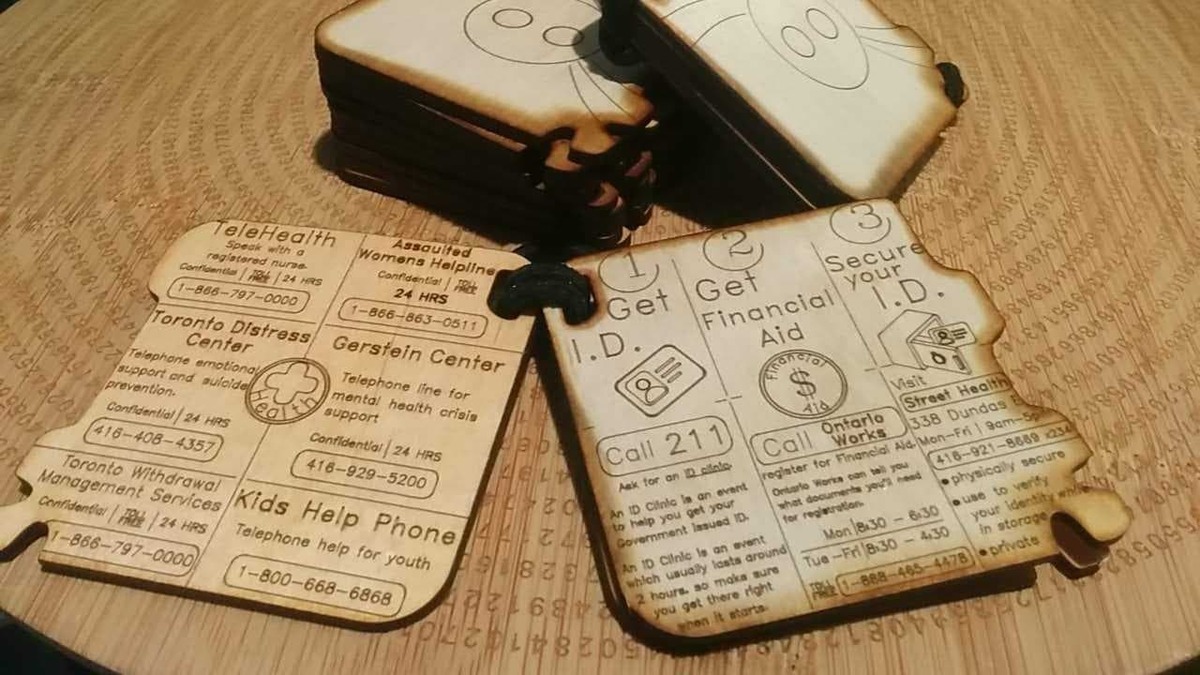 TeleHealth
Speak with a
registered nurse.
Confidential | TOLL FREE | 24 HRS
1-866-797-0000
Assaulted
Womens Helpline
Confidential | TOLL FREE
24 HRS
1-866-863-0511
Toronto Distress
Center
Telephone emotional
support and suicide
prevention.
Confidential | 24 HRS
416-408-4357
Health
Gerstein Center
Telephone line for
mental health crisis
support
Confidential | 24 HRS
416-929-5200
Toronto Withdrawal
Management Services
Confidential | TOLL FREE | 24 HRS
1-866-797-0000
Kids Help Phone
Telephone help for youth
1-800-668-6868
1
Get
I.D.
Call 211
Ask for an ID clinic
An ID Clinic is an event
to help you get your
Government Issued ID.
An ID Clinic is an event
which usually lasts around
2 hours, so make sure
you get there right
when it starts.
2
Get
Financial
Aid
Financial
$
Aid
Call Ontario
Works
register for Financial Aid.
Ontario Works can tell you
what documents you'll need
for registration.
Mon | 8:30 - 6:30
Tue-Fri | 8:30 - 4:30
TOLL FREE 1-888-465-4478
3
Secure
your
I.D.
Visit
Street Health
338 Dundas
Mon-Fri | 9am-
416-921-8669
• physically secure
• use to verify
your identity
in storage
• private